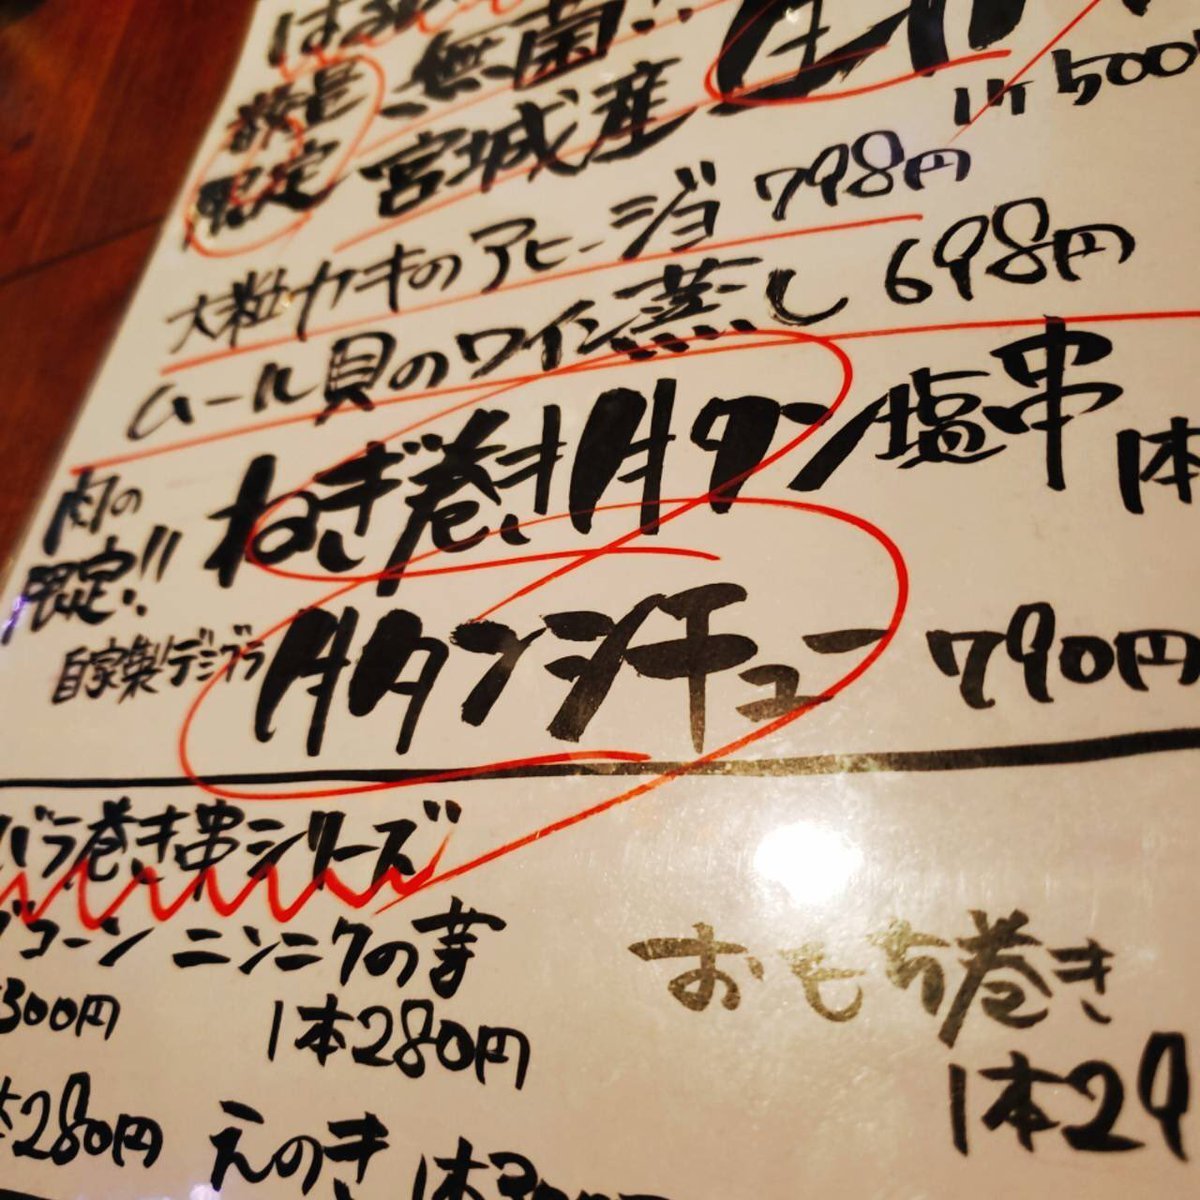 数量
限定
無菌!!
宮城産
500
大粒カキのアヒージョ 798円
ムール貝のワイン蒸し 698円
肉の
限定!!
ねぎ巻き月タン塩串 1本
自家製デミブラ
月タンシチュー 790円
バラ巻き串シリーズ
コーン ニンニクの芽
300円 1本280円
おもち巻き
1本29
280円 えのき 1本